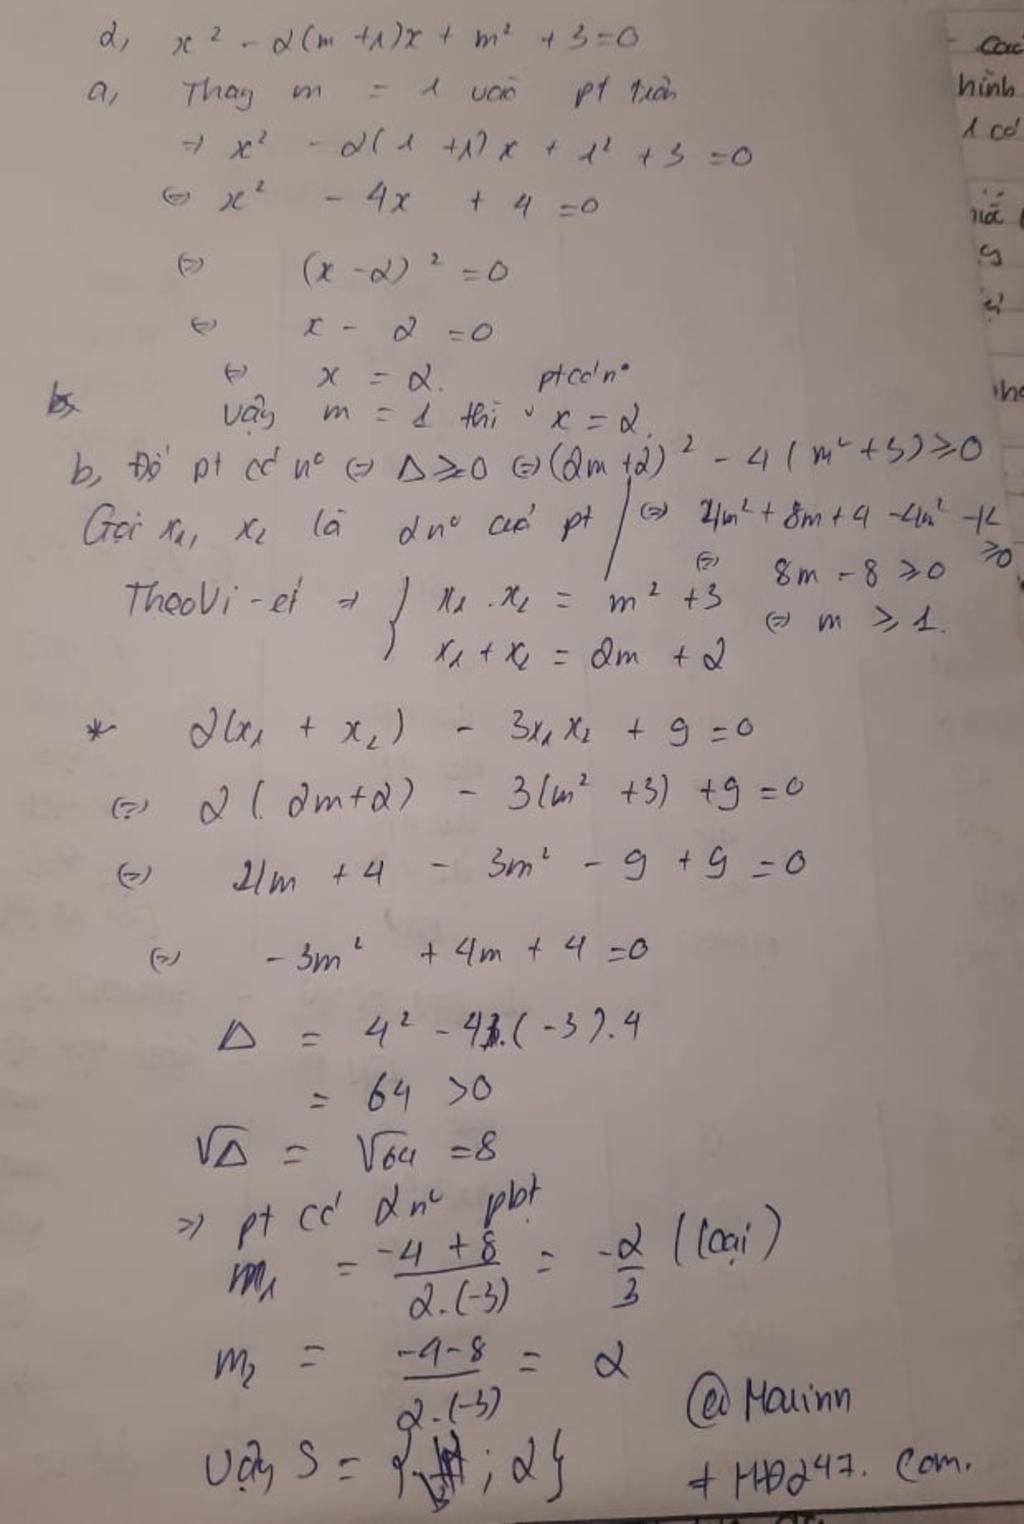 2, x² - 2(m+1)x + m² + 3 = 0
a, Thay m = 1 vào pt trên
⇒ x² - 2(1+1)x + 1² + 3 = 0
⇔ x² - 4x + 4 = 0
⇔ (x - 2)² = 0
⇔ x - 2 = 0
⇔ x = 2.
Vậy m = 1 thì pt có n° x = 2.
b, Để pt có n° ⇔ Δ ≥ 0 ⇔ (2m+2)² - 4(m²+3) ≥ 0
⇔ 4m² + 8m + 4 - 4m² - 12 ≥ 0
⇔ 8m - 8 ≥ 0
⇔ m ≥ 1.
Gọi x₁, x₂ là 2n° của pt
Theo Vi-ét ⇒ { x₁ . x₂ = m² + 3
x₁ + x₂ = 2m + 2
* 2(x₁ + x₂) - 3x₁x₂ + 9 = 0
⇔ 2(2m+2) - 3(m² + 3) + 9 = 0
⇔ 4m + 4 - 3m² - 9 + 9 = 0
⇔ -3m² + 4m + 4 = 0
Δ = 4² - 4.(-3).4
= 64 > 0
√Δ = √64 = 8
⇒ pt có 2n° pbt
m₁ = (-4 + 8)/(2.(-3)) = -2/3 (loại)
m₂ = (-4 - 8)/(2.(-3)) = 2
Vậy S = { ; 2}
@Mouinn
+ HĐ247. com.
các
hình
1 có